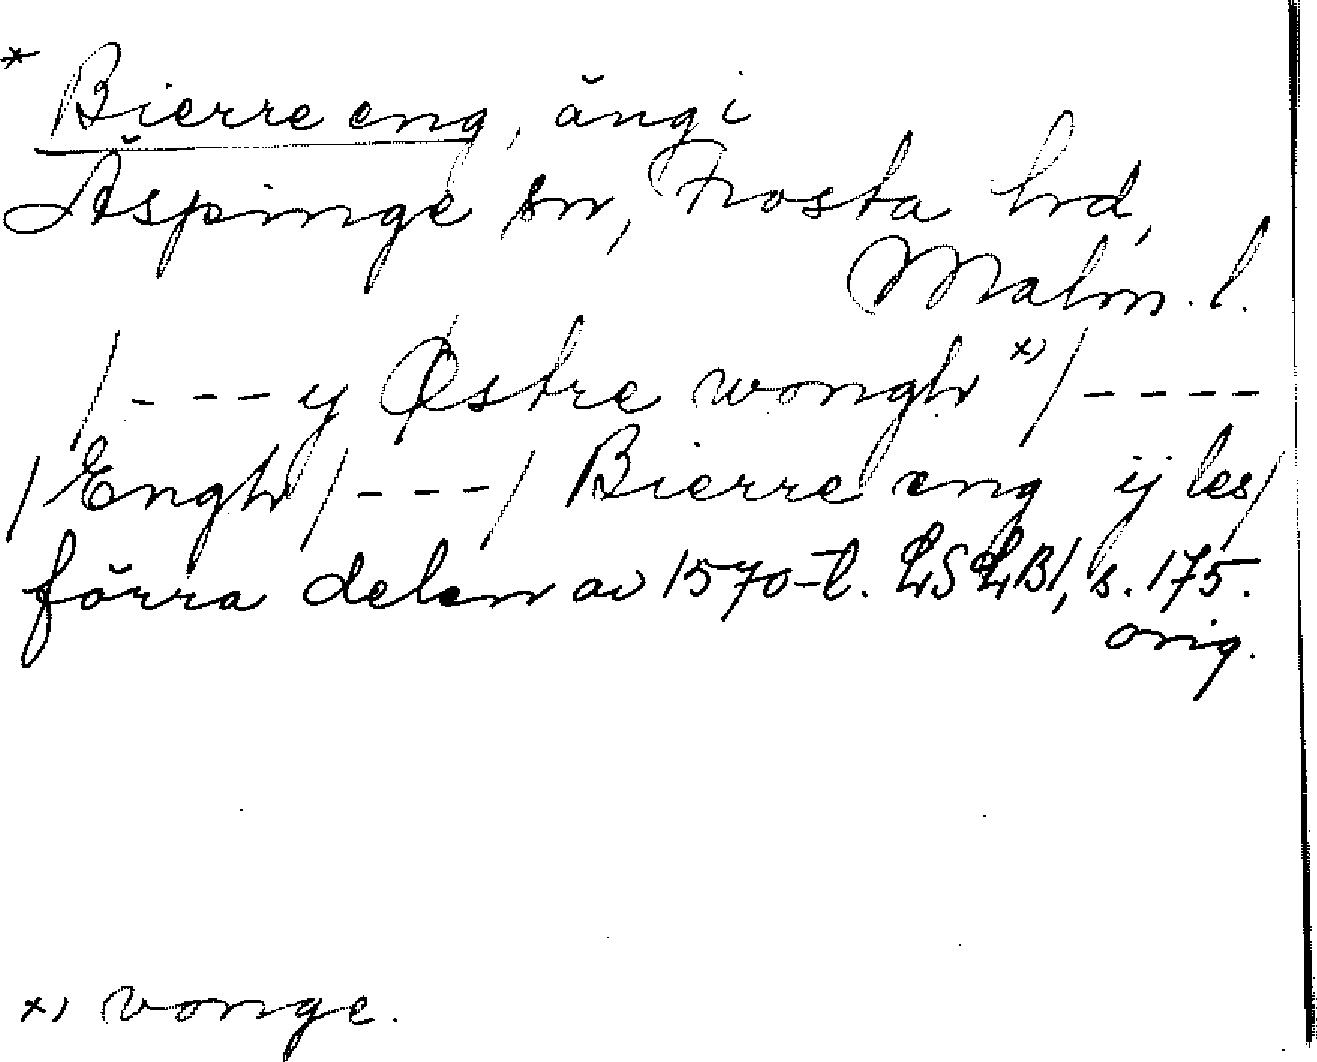 * Bierre eng, äng i
Äspinge sn, Frosta hrd,
Malm. l.
/---y Østre wongh x)/----
/Engh/---/Bierre eng ij les/
förra delen av 1570-t. LSLB1, s. 175.
orig.
x) vonge.